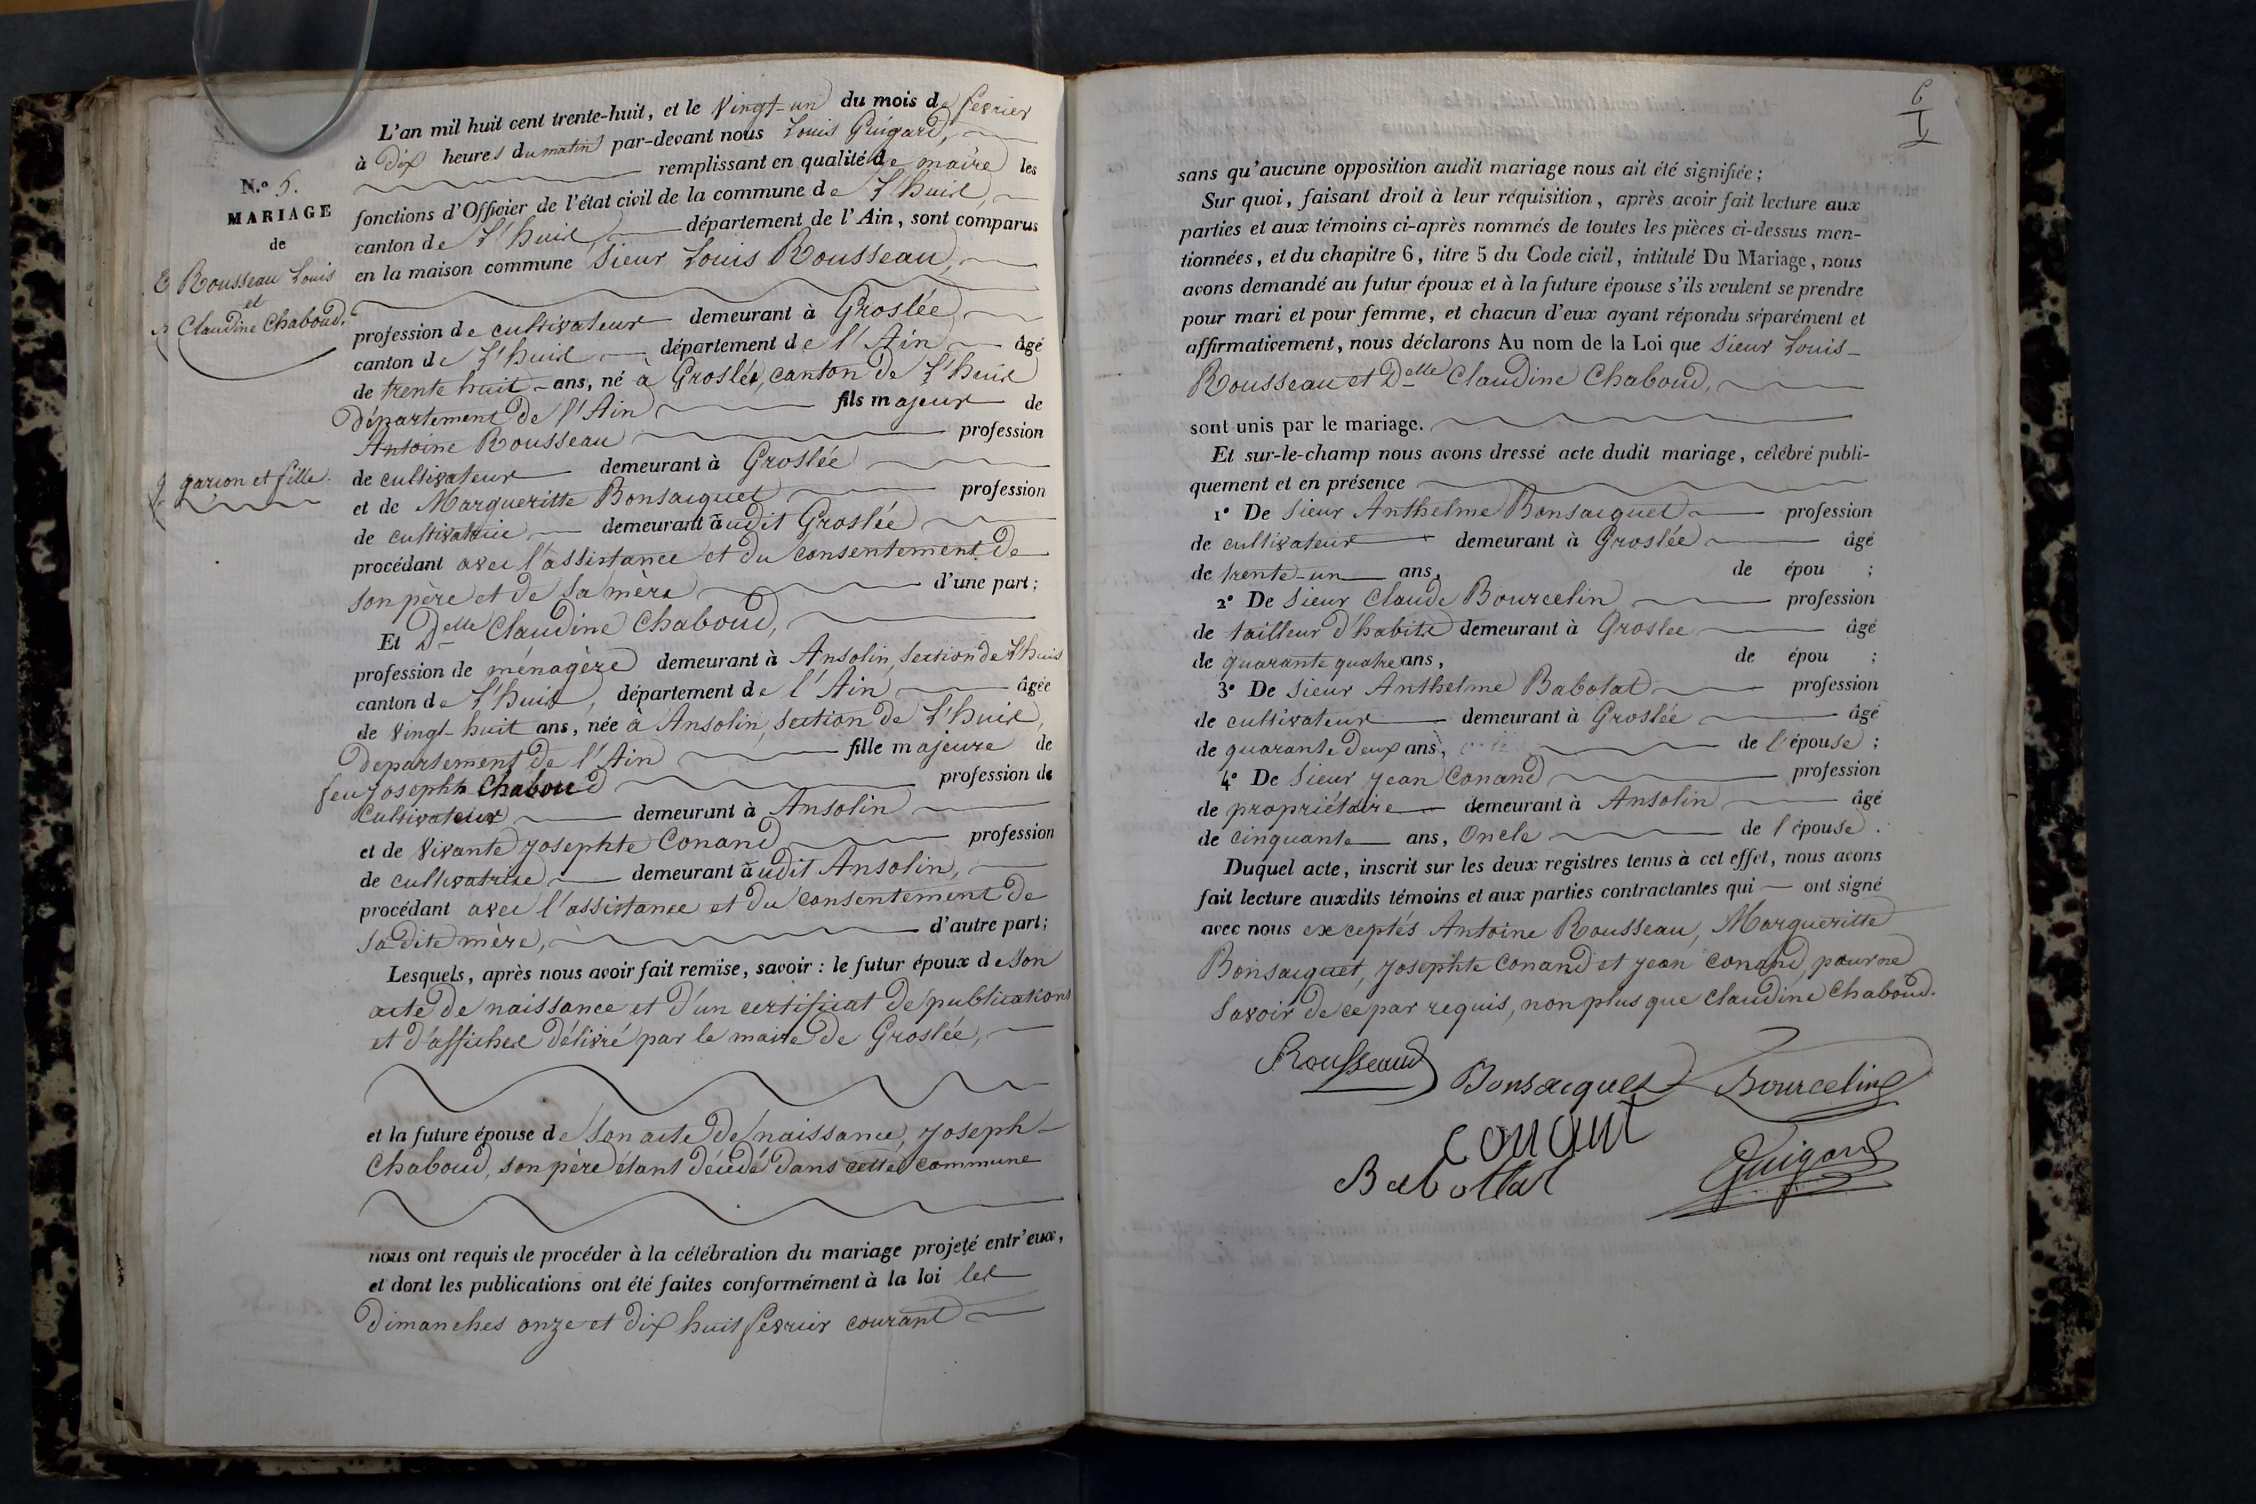 N.º 5.
MARIAGE
de
Rousseau Louis
et
Claudine Chaboud.
garçon et fille.
L'an mil huit cent trente-huit, et le vingt-un du mois de fevrier
à dix heures du matin par-devant nous Louis Guigard,
remplissant en qualité de maire les
fonctions d'Officier de l'état civil de la commune de L'huis,
canton de L'huis, département de l'Ain, sont comparus
en la maison commune Sieur Louis Rousseau,
profession de cultivateur demeurant à Groslée,
canton de L'huis département de l'Ain âgé
de trente huit ans, né à Groslée, canton de L'huis
département de l'Ain fils majeur de
Antoine Rousseau profession
de cultivateur demeurant à Groslée
et de Margueritte Bonsacquet profession
de cultivatrice demeurant audit Groslée
procédant avec l'assistance et du consentement de
son père et de sa mère d'une part;
Et Delle Claudine Chaboud,
profession de ménagère demeurant à Ansolin, section de L'huis
canton de L'huis, département de l'Ain âgée
de vingt-huit ans, née à Ansolin, section de L'huis,
departement de l'Ain fille majeure de
feu Josephte Chaboud profession de
cultivateur demeurant à Ansolin
et de vivante Josephte Conand profession
de cultivatrice demeurant audit Ansolin,
procédant avec l'assistance et du consentement de
sa dite mère, d'autre part;
Lesquels, après nous avoir fait remise, savoir: le futur époux de son
acte de naissance et d'un certificat de publications
et d'affiches délivré par le maire de Groslée,
et la future épouse de son acte de naissance, Joseph
Chaboud, son père étant décédé dans cette commune
nous ont requis de procéder à la célébration du mariage projeté entr'eux,
et dont les publications ont été faites conformément à la loi les
dimanches onze et dix huit fevrier courant
6
sans qu'aucune opposition audit mariage nous ait été signifiée;
Sur quoi, faisant droit à leur réquisition, après avoir fait lecture aux
parties et aux témoins ci-après nommés de toutes les pièces ci-dessus men-
tionnées, et du chapitre 6, titre 5 du Code civil, intitulé Du Mariage, nous
avons demandé au futur époux et à la future épouse s'ils veulent se prendre
pour mari et pour femme, et chacun d'eux ayant répondu séparément et
affirmativement, nous déclarons Au nom de la Loi que Sieur Louis
Rousseau et Delle Claudine Chaboud,
sont unis par le mariage.
Et sur-le-champ nous avons dressé acte dudit mariage, célébré publi-
quement et en présence
1º De Sieur Anthelme Bonsacquet profession
de cultivateur demeurant à Groslée âgé
de trente-un ans, de épou ;
2º De Sieur Claude Bourcelin profession
de tailleur d'habits demeurant à Groslee âgé
de quarante quatre ans, de épou ;
3º De Sieur Anthelme Babolat profession
de cultivateur demeurant à Groslée âgé
de quarante deux ans, de l'épouse;
4º De Sieur Jean Conand profession
de propriétaire demeurant à Ansolin âgé
de cinquante ans, Oncle de l'épouse.
Duquel acte, inscrit sur les deux registres tenus à cet effet, nous avons
fait lecture auxdits témoins et aux parties contractantes qui ont signé
avec nous exceptés Antoine Rousseau, Margueritte
Bonsacquet, Josephte Conand et Jean Conand, pour ne
savoir de ce par requis, non plus que Claudine Chaboud.
Rousseaud Bonsacquet Bourcelin
Conant
Babollat Guigard